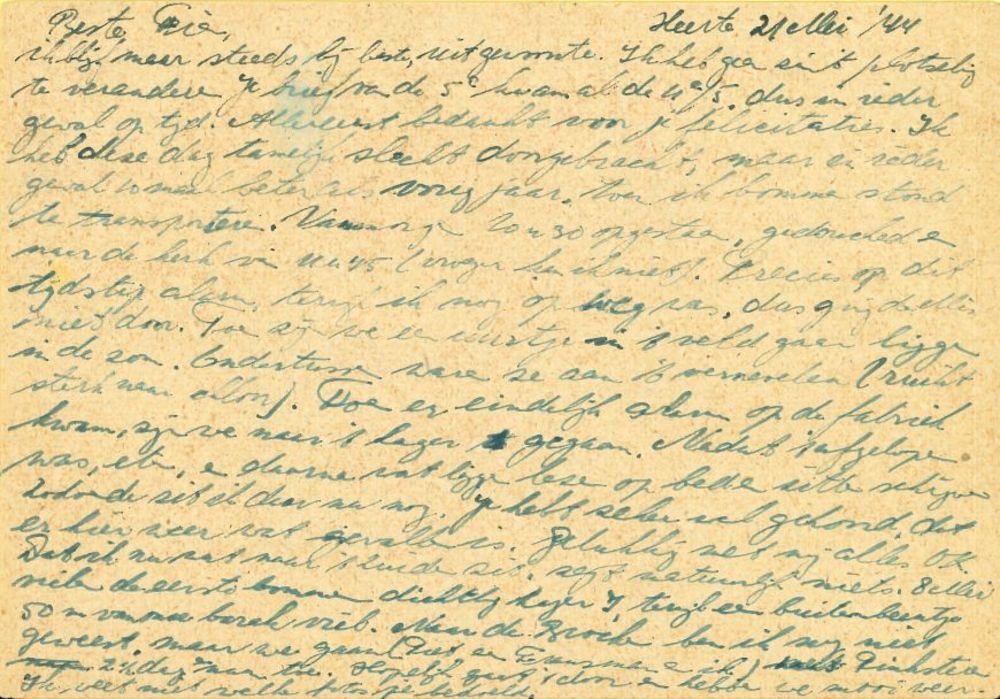 Beste Fie, Heerte 21 Mei '44
ik blijf maar steeds bij beste, uit gewoonte. Ik heb geen zin 't plotseling
te veranderen. Je brief van de 5e kwam al de 11e/5, dus in ieder
geval op tijd. Allereerst bedankt voor je felicitaties. Ik
heb deze dag tamelijk slecht doorgebracht, maar in ieder
geval 10 maal beter als vorig jaar, toen ik bommen stond
te transporteren. Vanmorgen 10 u 30 opgestaan, gedouched en
naar de kerk van 11 u 45 (vroeger kon ik niet). Precies op dit
tijdstip alarm, terwijl ik nog op weg was, dus ging de Mis
niet door. Toen zijn we een uurtje in 't veld gaan liggen
in de zon. Ondertussen waren ze aan 't vernevelen (ruikt
sterk naar chloor). Toen er eindelijk alarm op de fabriek
kwam, zijn we naar 't lager gegaan. Nadat 't afgelopen
was, eten, en daarna wat liggen lezen op bed en zitten schrijven
Zodoende zit ik hier nu nog. Je hebt zeker wel gehoord, dat
er hier weer wat gevallen is. Gelukkig met mij alles OK
Dat ik nu wat naar 't zuiden zit, zegt natuurlijk niets. 8 Mei
vielen de eerste bommen dichtbij lager, terwijl een buitenbeentje
50 m van onze barak viel. Naar de Brocken ben ik nog niet
geweest, maar we gaan (Piet en en ik) Pinksteren
2½ dag naar toe.
Ik weet niet welke foto's je bedoelt